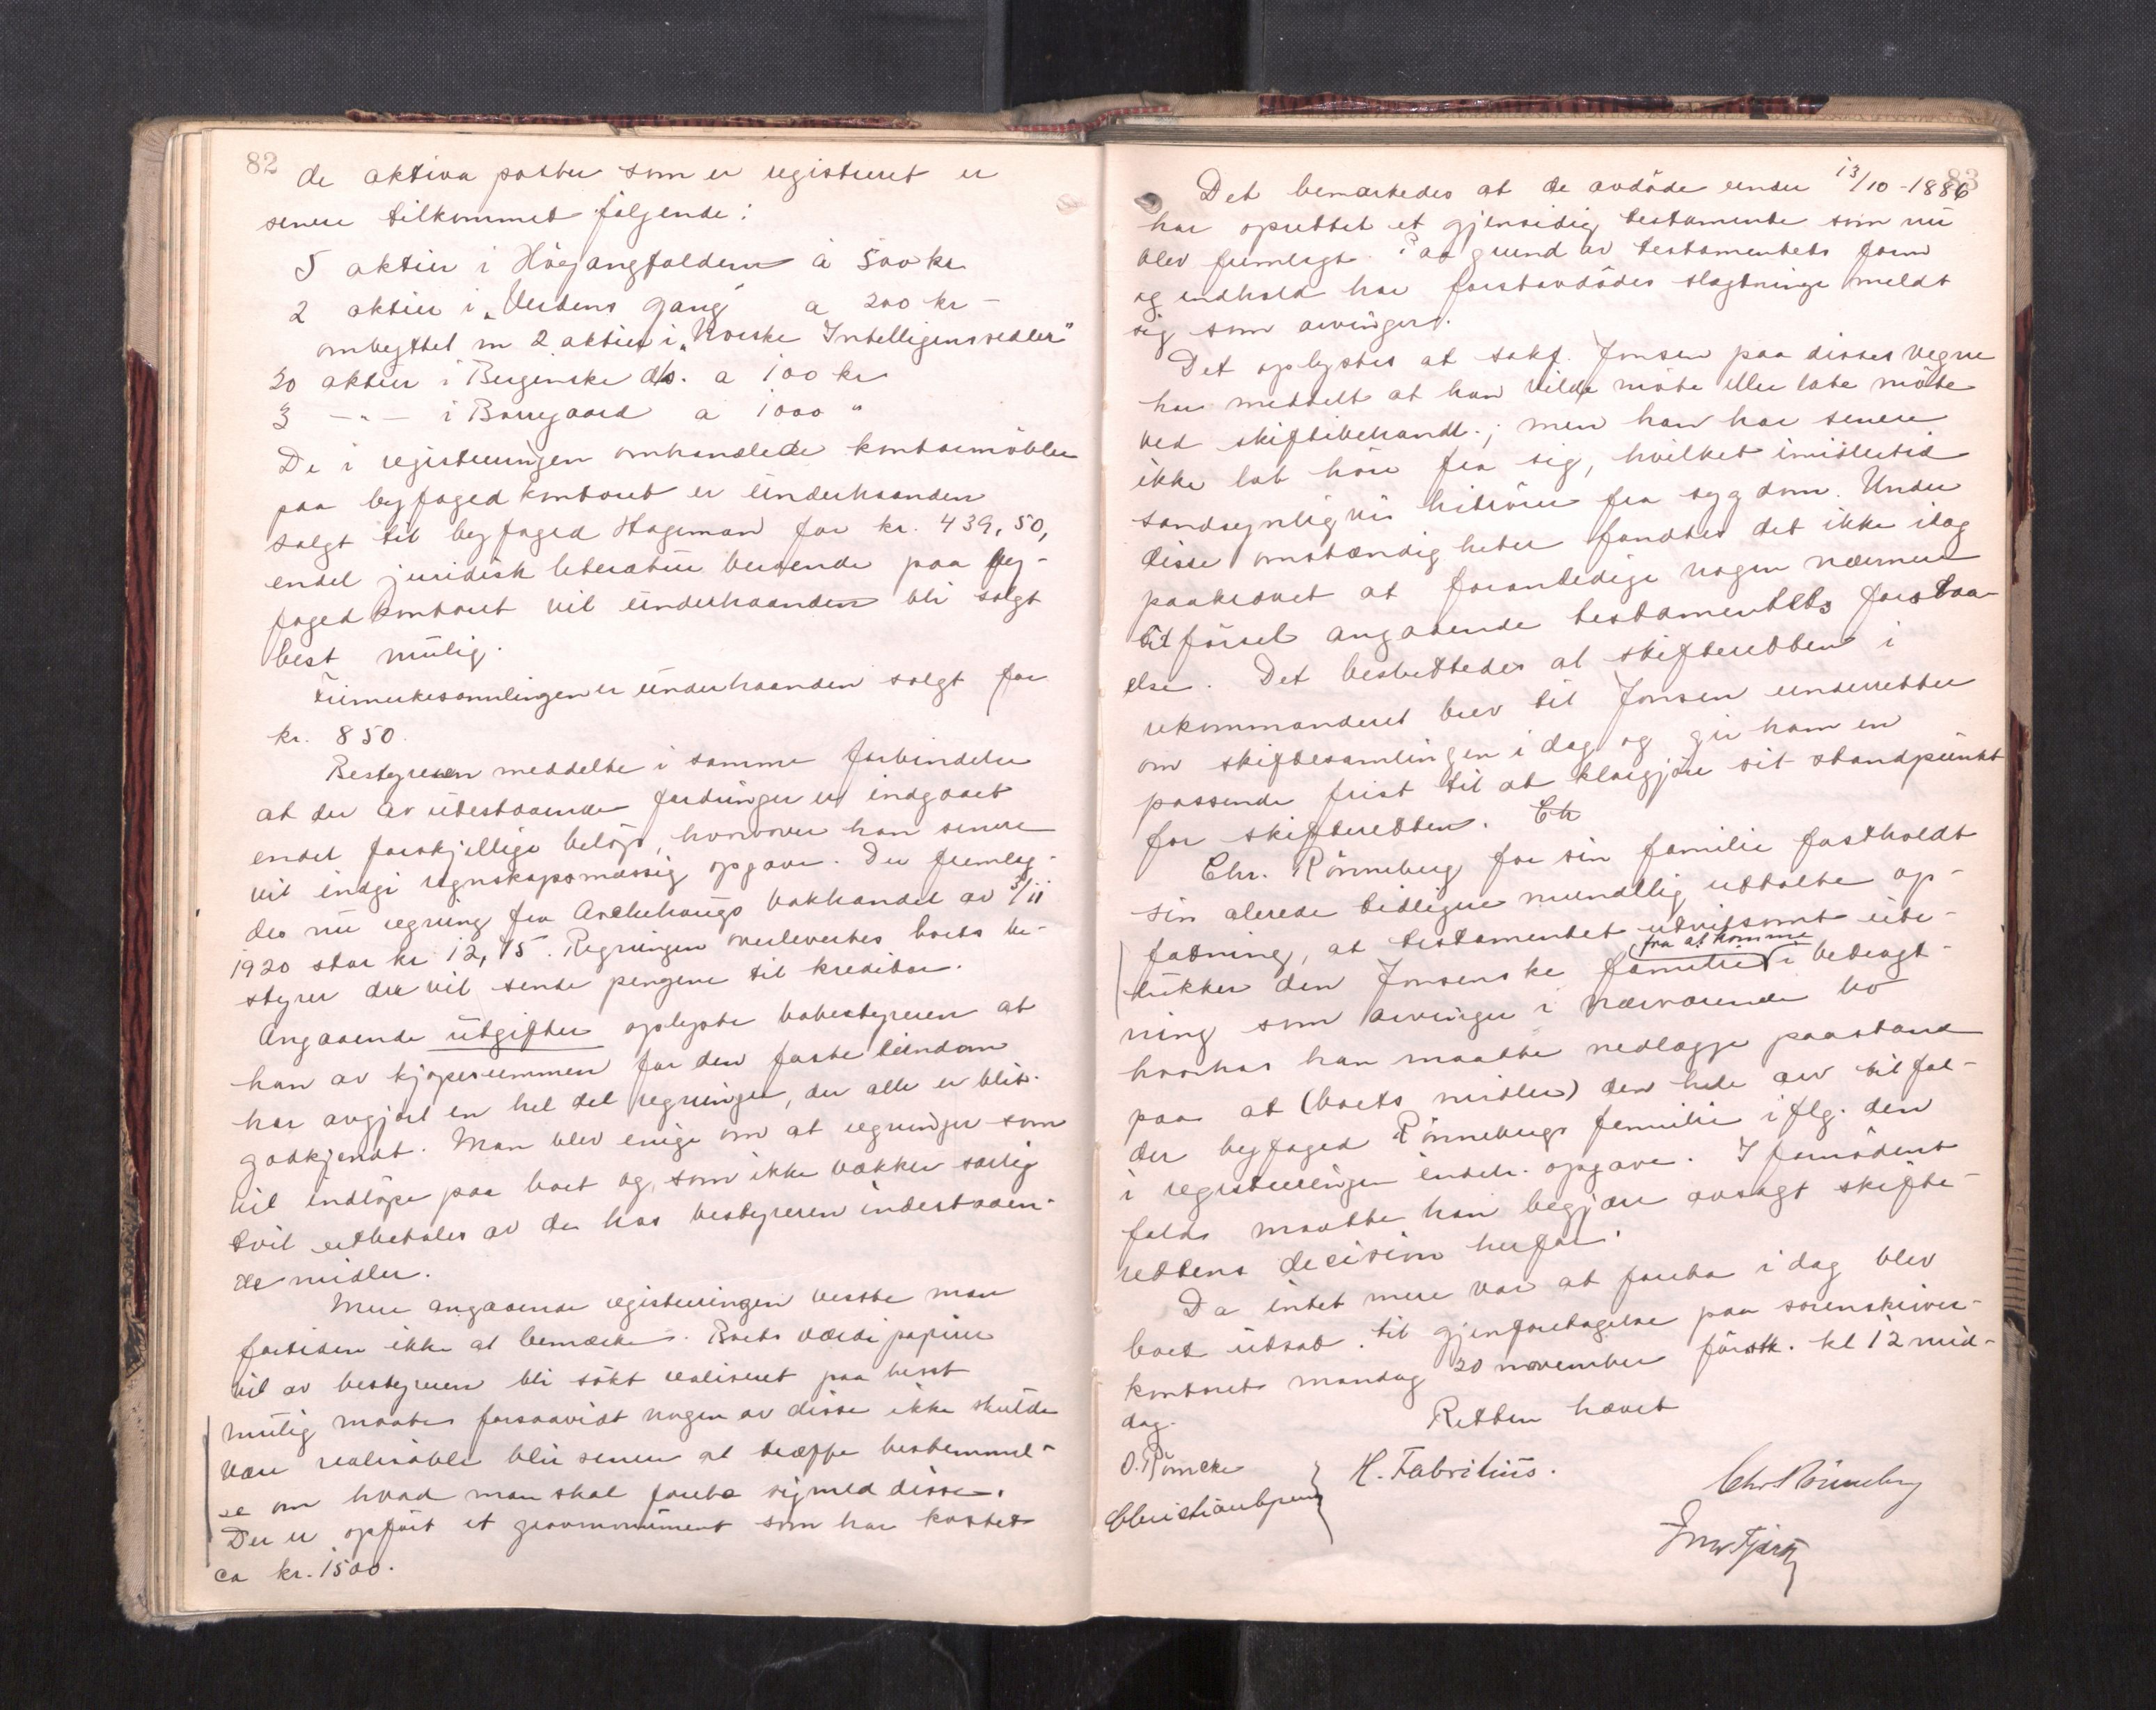 82
de aktiva poster som er registreret er
senere tilkommet følgende:
5 aktier i Høgangfalderne à 500 kr
2 aktier i „Verdens gang" a 200 kr -
ombyttet m 2 aktier i „Norske Intelligenssedler"
20 aktier i Bergenske d/s. a 100 kr
3 -"- i Borregaard a 1000 "
De i registreringen omhandlede kontormøbler
paa byfogedkontoret er underhaanden
solgt til byfoged Hageman for kr. 439,50,
endel juridisk literatur beroende paa by-
fogedkontoret vil underhaanden bli solgt
best mulig.
Frimerkesamlingen er underhaanden solgt for
kr. 850.
Bestyreren meddelte i samme forbindelse
at der av utestaaende fordringer er indgaaet
endel forskjellige beløp, hvorover han senere
vil indgi regnskapsmæssig opgave. Der fremlag-
des nu regning fra Arelhaugs bokhandel av 3/11
1920 stor kr 12,75. Regningen overlevertes boets be-
styrer der vil sende pengene til kreditor.
Angaaende utgifter oplyste bobestyreren at
han av kjøpesummen for den faste eiendom
har avgjort en hel del regninger, der alle er blit
godkjendt. Man blev enige om at regninger som
vil indløpe paa boet og som ikke vækker særlig
tvil utbetales av de hos bestyreren indestaaen-
de midler.
Mere angaaende registreringen visste man
forsiden ikke at bemærke. Boets værdipapirer
vil av bestyreren bli søkt realiseret paa best
mulig maate; forsaavidt nogen av disse ikke skulde
være realisable blir senere at træffe bestemmel-
se om hvad man skal foreta sig med disse.
Der er opført et gravmonument som har kostet
ca kr. 1500.
83
Det bemærkedes at de avdøde under 13/10-1886
har oprettet et gjensidig testamente som nu
blev fremlagt. Paa grund av testamentets form
og indhold har førstavdødes slægtninge meldt
sig som arvinger.
Det oplystes at sakf. Jonsen paa disses vegne
har meddelt at han vilde møte eller late møte
ved skiftebehandl.; men han har senere
ikke lat høre fra sig, hvilket imidlertid
sandsynligvis hitrører fra sygdom. Under
disse omstændigheter fandtes det ikke idag
paakrævet at foranledige nogen nærmere
utførsel angaaende testamentets forstaa-
else. Det besluttedes at skifteretten i
rekommanderet brev til Jonsen underretter
om skiftesamlingen i dag og gir ham en
passende frist til at klargjøre sit standpunkt
for skifteretten. Ch
Chr. Rönneberg for sin familie fastholdt
sin allerede tidligere mundtlig uttalte op-
fatning, at testamentet utvilsomt ute-
lukker den Jonsenske familie fra at komme i betragt-
ning som arvinger i nærværende bo
hvorhos han maatte nedlægge paastand
paa at (boets midler) den hele arv tilfal-
der byfoged Rönnebergs familie iflg. den
i registreringen indeh. opgave. I fornødent
fald maatte han begjære avsagt skifte-
rettens decision herfor.
Da intet mere var at foreta i dag blev
boet utsat til gjenforetagelse paa sorenskriver-
kontoret mandag 20 november førstk. kl 12 mid-
dag.
Retten hævet
O. Römcke
H. Fabritius.
Chr Rönneberg